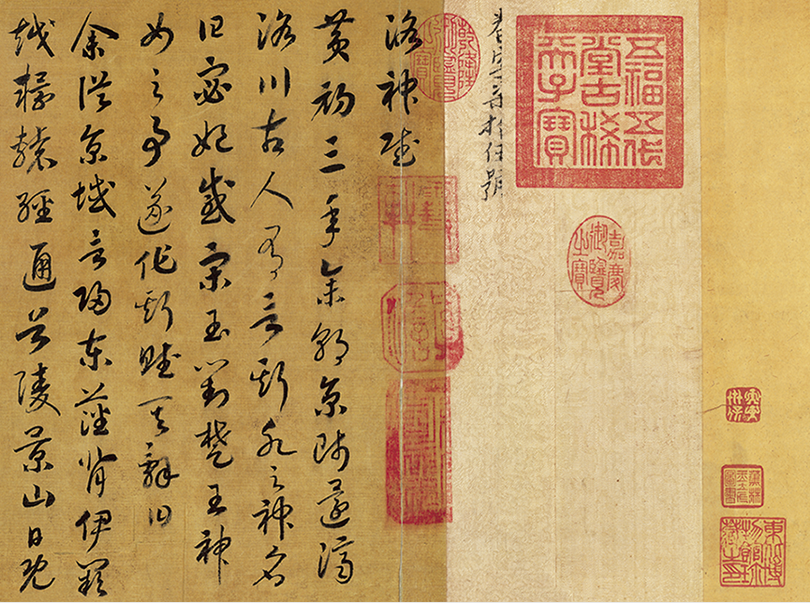 東北博
物館珍
藏之印
五福五代
堂古稀
天子寶
嘉慶
御覽
之寶
乾隆
御覽
之寶
洛神賦
黄初三年余朝京師還濟
洛川古人有言斯水之神名
曰宓妃感宋玉對楚王神
女之事遂作斯賦其辭曰
余從京域言歸東藩背伊闕
越轘轅經通谷陵景山日既